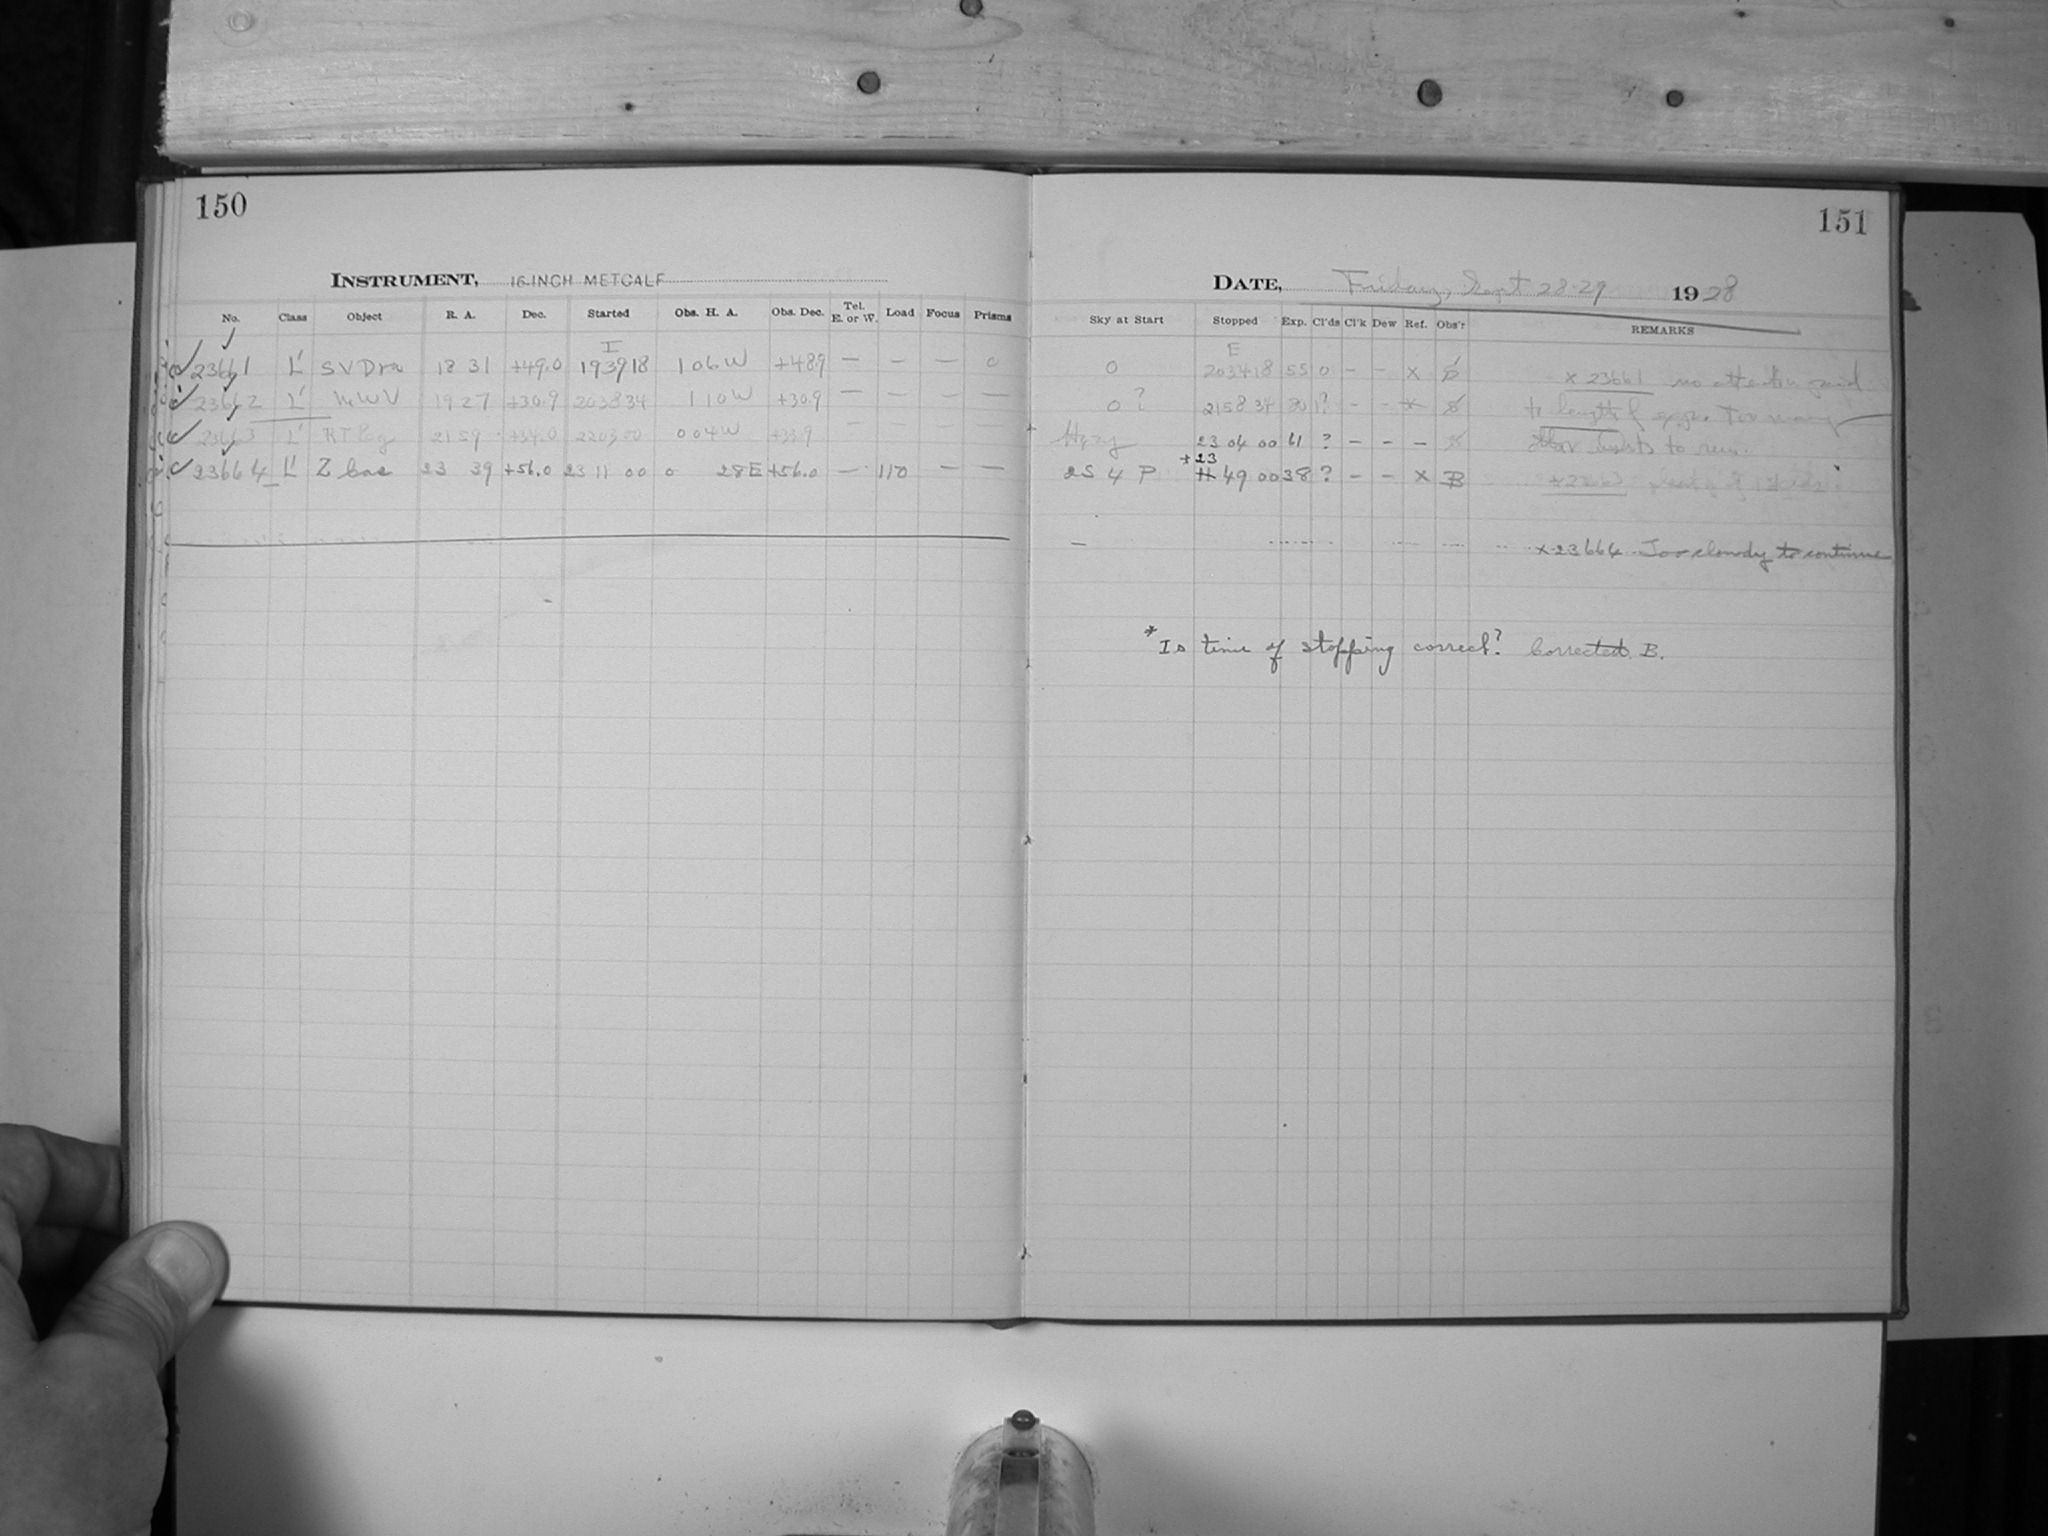 150
INSTRUMENT, 16-INCH METCALF
No. Class Object R. A. Dec. Started Obs. H. A. Obs. Dec. Tel. E. or W. Load Focus Prisms
I
23661 L' SV Dra 18 31 +49.0 193918 1 06 W +48.9 — — — 0
23662 L' 19 27 +30.9 203834 1 10 W +30.9 — — — —
23663 L' RT Peg 21 59 +34.0 220300 0 04 W +33.9 — — — —
23664 L' Z Cas 23 39 +56.0 23 11 00 0 28 E +56.0 — 110 — —
151
DATE, Friday, Sept 28-29 1928
Sky at Start Stopped Exp. Cl'ds Cl'k Dew Ref. Obs'r REMARKS
E
0 203418 55 0 — — x B x 23661 no attention paid
0? 2158 34 80 1? — — * B to length of expo. Too many
Hazy 23 04 00 61 ? — — — B other insts to run.
* 23
2S 4 P 11 49 00 38 ? — — x B x 23663 plenty of
— x 23664 Too cloudy to continue
* Is time of stopping correct? Corrected. B.